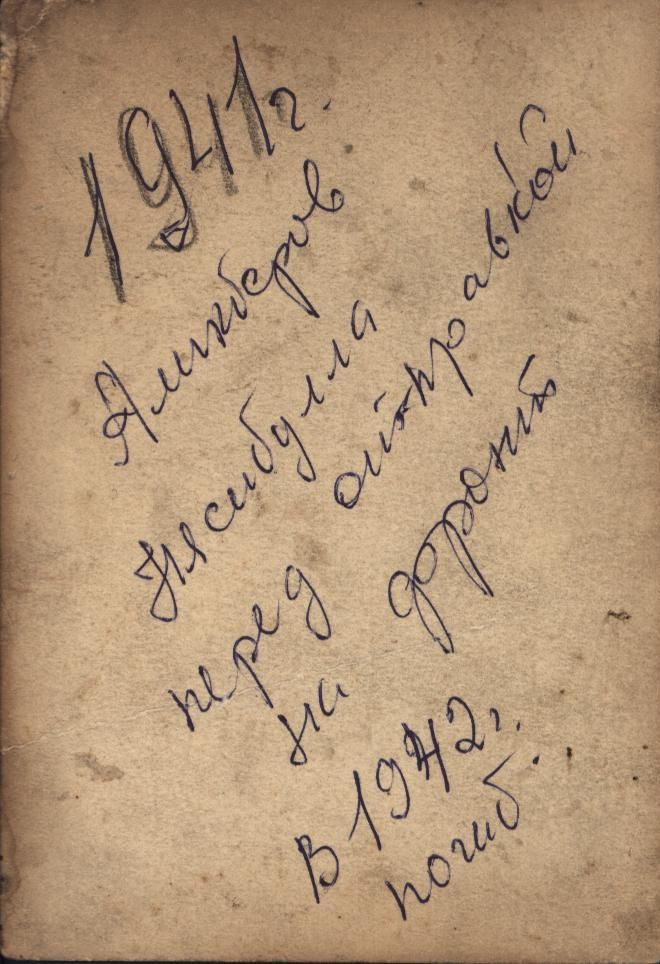 1941г.
Аликберов
Насибулла
перед отправкой
на фронт
В 1942г.
погиб.